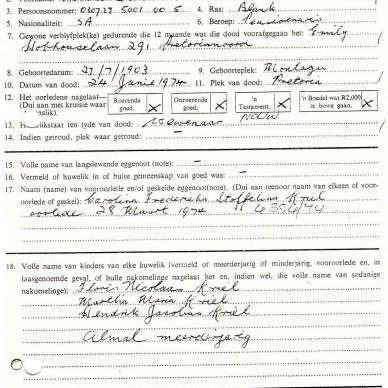 3. Persoonsnommer: 030727 5001 00 5 4. Ras: Blank
5. Nasionaliteit: SA 6. Beroep: Pensioenaris
7. Gewone verblyfplek(ke) gedurende die 12 maande wat die dood voorafgegaan het: Emily
Hobhouselaan 291 Pretorianoord
8. Geboortedatum: 27/7/1903 9. Geboorteplek: Montagu
10. Datum van dood: 24 Junie 1974 11. Plek van dood: Pretoria
12. Het oorledene nagelaat—
(Dui aan met kruisie waar
Roerende
goed. X
Onroerende
goed. X
'n
Testament. X
'n Boedel wat R2,000
te bowe gaan. X
NCUW
13. Huwelikstaat ten tyde van dood: Wewenaar
14. Indien getroud, plek waar getroud: –
15. Volle naam van langslewende eggenoot (note): –
16. Vermeld of huwelik in of buite gemeenskap van goed was: –
17. Naam (name) van vooroorlede en/of geskeide eggenoot(note). (Dui aan teenoor naam van elkeen of voor-
oorlede of geskei): Carolina Frederika Stoffelina Kriel
oorlede 28 Maart 1974 4354/74
18. Volle name van kinders van elke huwelik (vermeld of meerderjarig of minderjarig, vooroorlede en, in
laasgenoemde geval, of hulle nakomelinge nagelaat het en, indien wel, die volle name van sodanige
nakomelinge): Floris Nicolaas Kriel
Martha Maria Kriel
Hendrik Jacobus Kriel
Almal meerderjarig